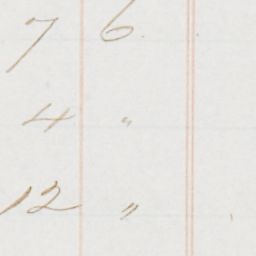 7 6.
4 "
12 "